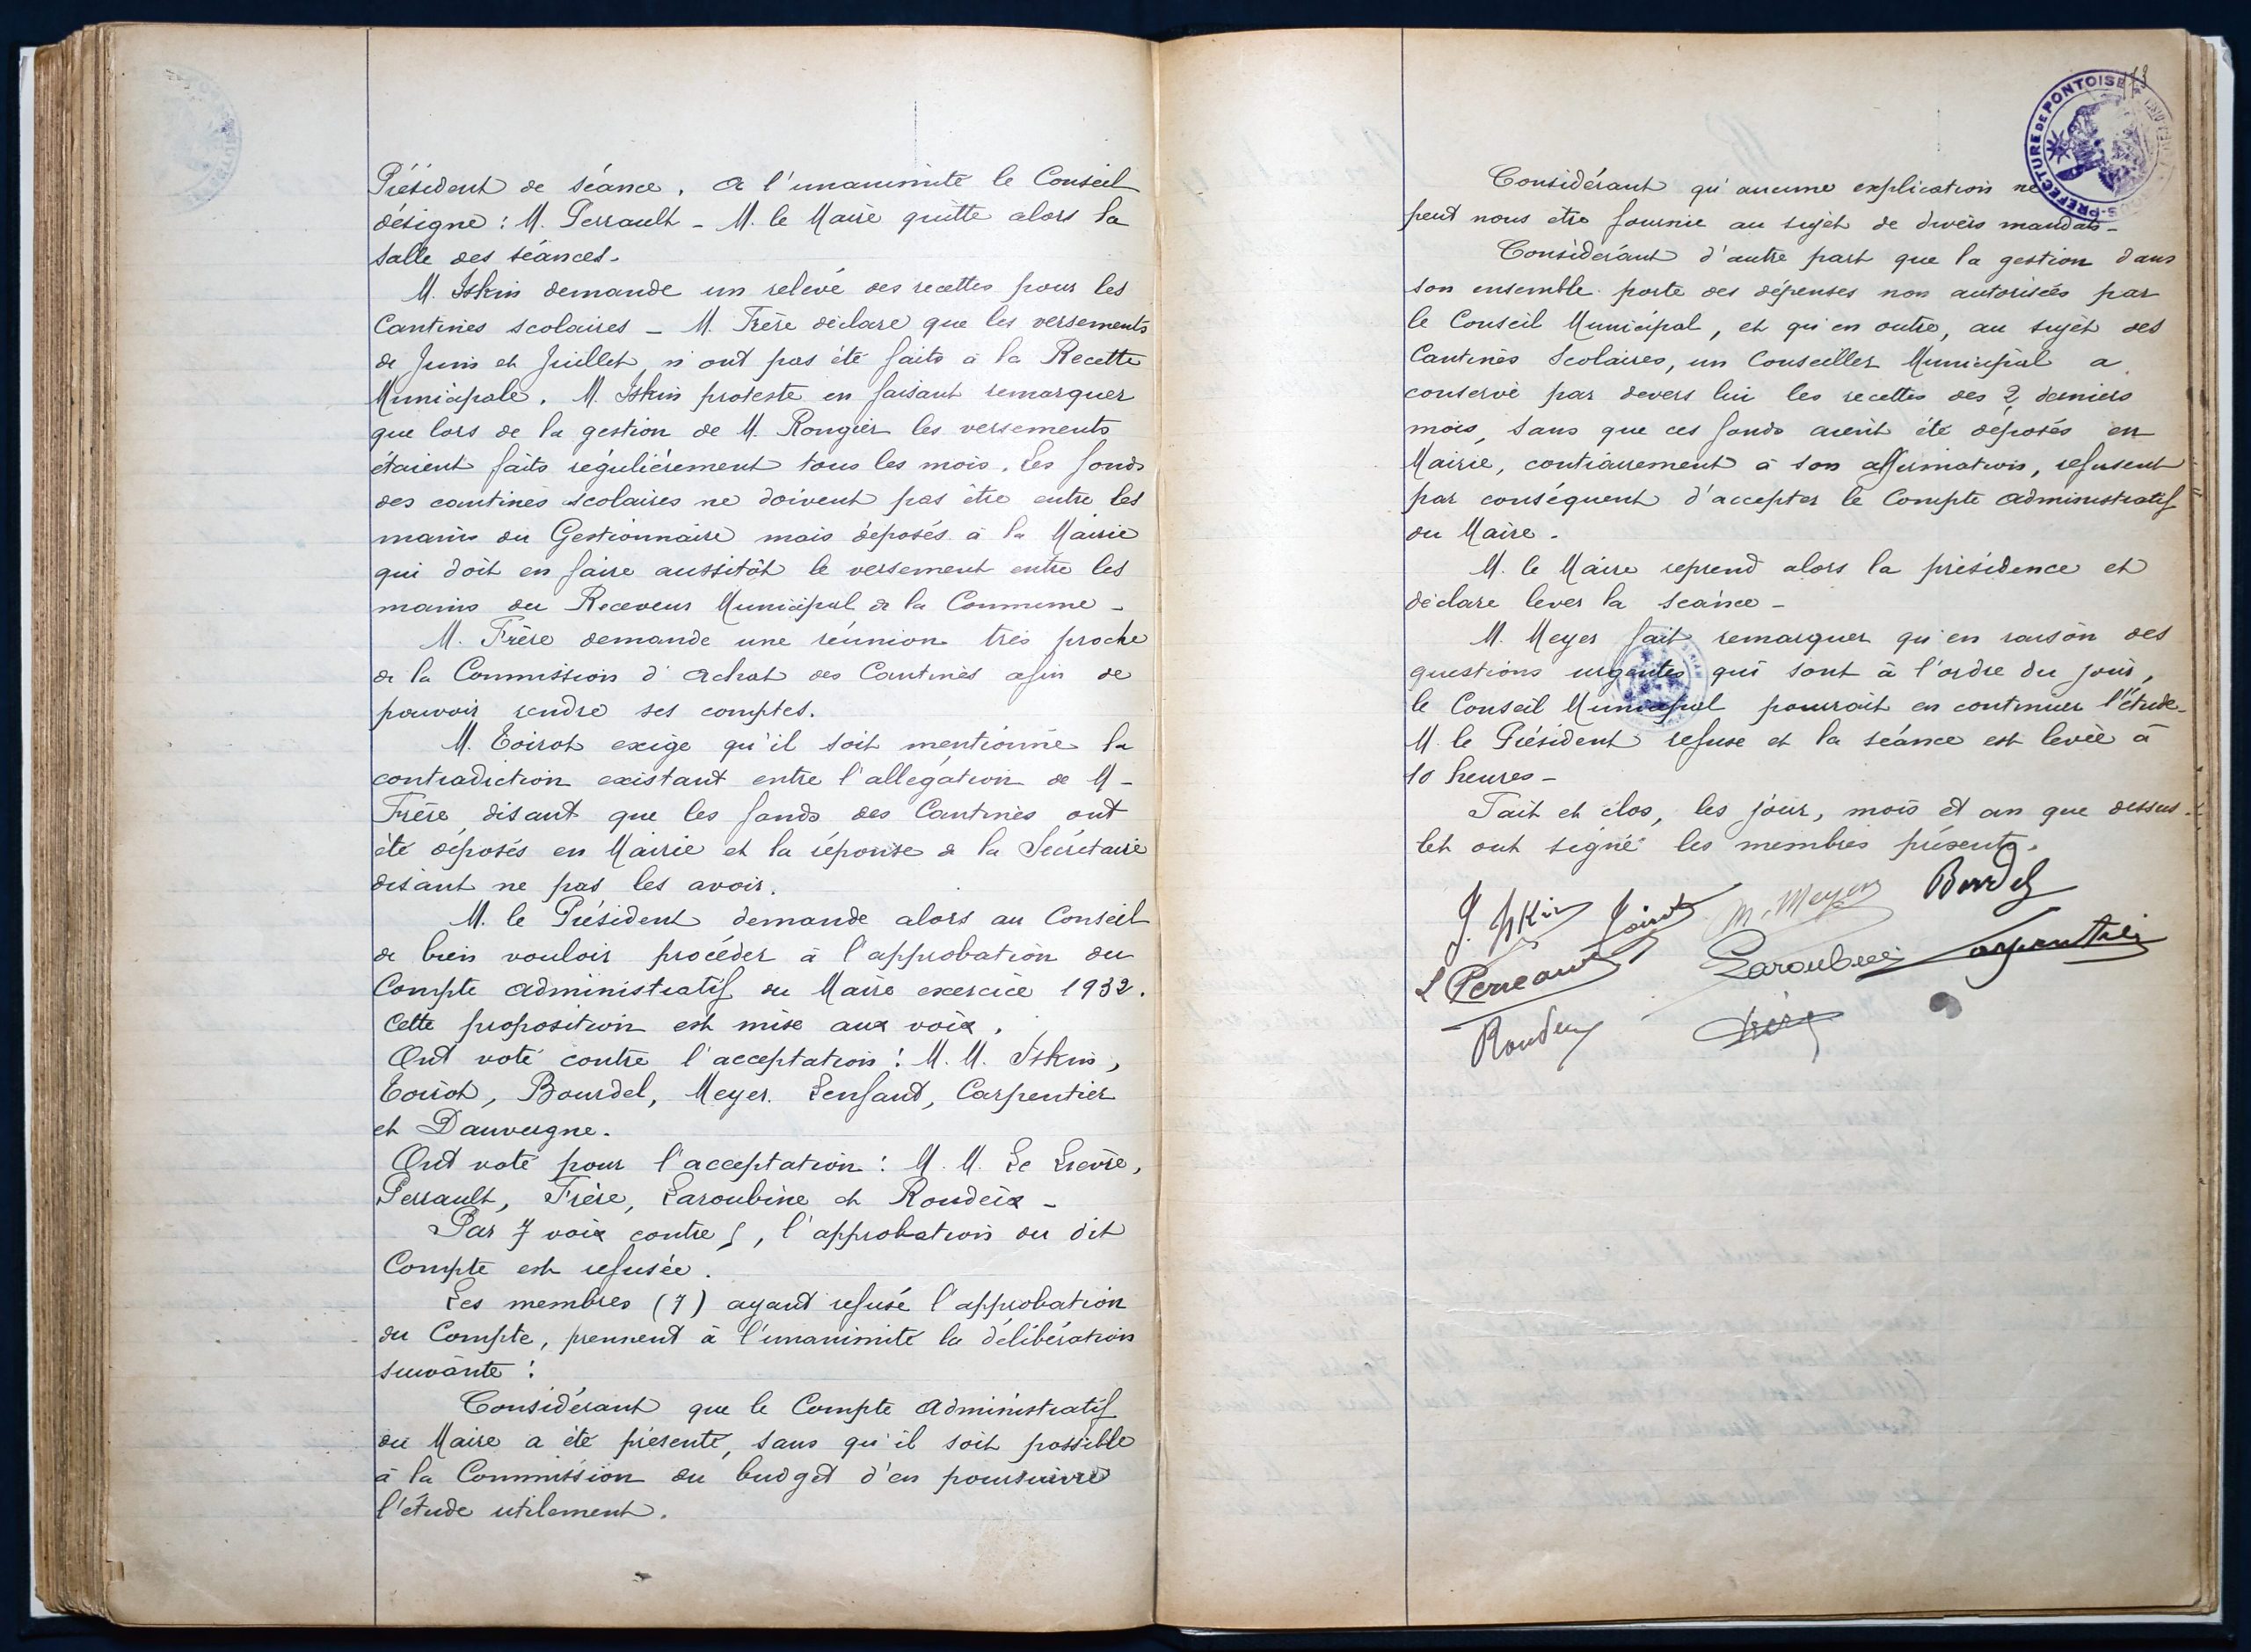 Président de séance. A l'unanimité le Conseil
désigne : M. Perrault - M. le Maire quitte alors la
salle des séances.
M. Iskin demande un relevé des recettes pour les
Cantines scolaires - M. Frère déclare que les versements
de Juin et Juillet n'ont pas été faits à la Recette
Municipale. M. Iskin proteste en faisant remarquer
que lors de la gestion de M. Rongier les versements
étaient faits régulièrement tous les mois. Les fonds
des cantines scolaires ne doivent pas être entre les
mains du Gestionnaire mais déposés à la Mairie
qui doit en faire aussitôt le versement entre les
mains du Receveur Municipal de la Commune -
M. Frère demande une réunion très proche
de la Commission d'Achat des Cantines afin de
pouvoir rendre ses comptes.
M. Toirot exige qu'il soit mentionné la
contradiction existant entre l'allégation de M -
Frère disant que les fonds des Cantines ont
été déposés en Mairie et la réponse de la Secrétaire
disant ne pas les avoir.
M. le Président demande alors au Conseil
de bien vouloir procéder à l'approbation du
Compte Administratif du Maire exercice 1932.
Cette proposition est mise aux voix.
Ont voté contre l'acceptation : M. M. Iskin,
Toirot, Bourdel, Meyer. Lenfant, Carpentier
et Dauvergne.
Ont voté pour l'acceptation : M. M. Le Lievre,
Perrault, Frère, Laroubine et Roudeix -
Par 7 voix contre 5, l'approbation du dit
Compte est refusée.
Les membres (7) ayant refusé l'approbation
du Compte, prennent à l'unanimité la délibération
suivante :
Considérant que le Compte Administratif
du Maire a été présenté, sans qu'il soit possible
à la Commission du budget d'en poursuivre
l'étude utilement.
SOUS-PRÉFECTURE DE PONTOISE
Considérant qu'aucune explication ne
peut nous être fournie au sujet de divers mandats -
Considérant d'autre part que la gestion dans
son ensemble porte des dépenses non autorisées par
le Conseil Municipal, et qu'en outre, au sujet des
Cantines Scolaires, un Conseiller Municipal a
conservé par devers lui les recettes des 2 derniers
mois, sans que ces fonds aient été déposés en
Mairie, contrairement à son affirmation, refusent
par conséquent d'accepter le Compte Administratif
du Maire.
M. le Maire reprend alors la présidence et
déclare lever la séance -
M. Meyer fait remarquer qu'en raison des
questions urgentes qui sont à l'ordre du jour,
le Conseil Municipal pourrait en continuer l'étude -
M. le Président refuse et la séance est levée à
10 heures -
Fait et clos, les jour, mois et an que dessus.
Et ont signé les membres présents.
J. Iskin Toirot M. Meyer Bourdel
L Perreault Laroubine Carpentier
Roudeix Frère